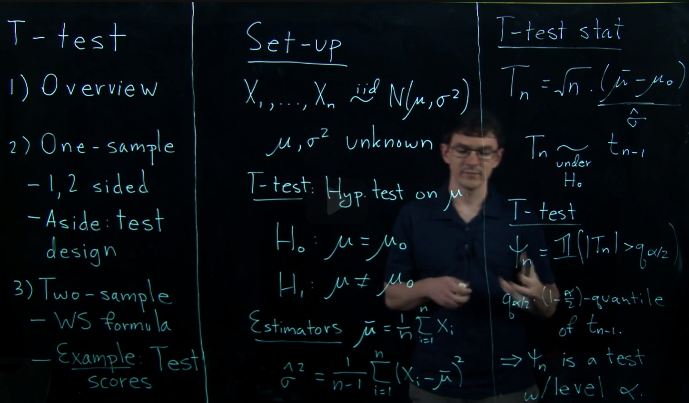 T-test
1) Overview
2) One-sample
- 1, 2 sided
- Aside: test
design
3) Two-sample
- WS formula
- Example: Test
scores
Set-up
X₁, ..., Xₙ iid ~ N(μ, σ²)
μ, σ² unknown
T-test: Hyp. test on μ
H₀: μ = μ₀
H₁: μ ≠ μ₀
Estimators μ̄ = 1/n Σᵢ₌₁ⁿ Xᵢ
σ̂² = 1/(n-1) Σᵢ₌₁ⁿ (Xᵢ - μ̄)²
T-test stat
Tₙ = √n · (μ̄ - μ₀)/σ̂
Tₙ ~ tₙ₋₁
under
H₀
T-test
Ψₙ = 𝟙(|Tₙ| > q_{α/2})
q_{α/2}: (1-α/2)-quantile
of tₙ₋₁.
⇒ Ψₙ is a test
w/level α.